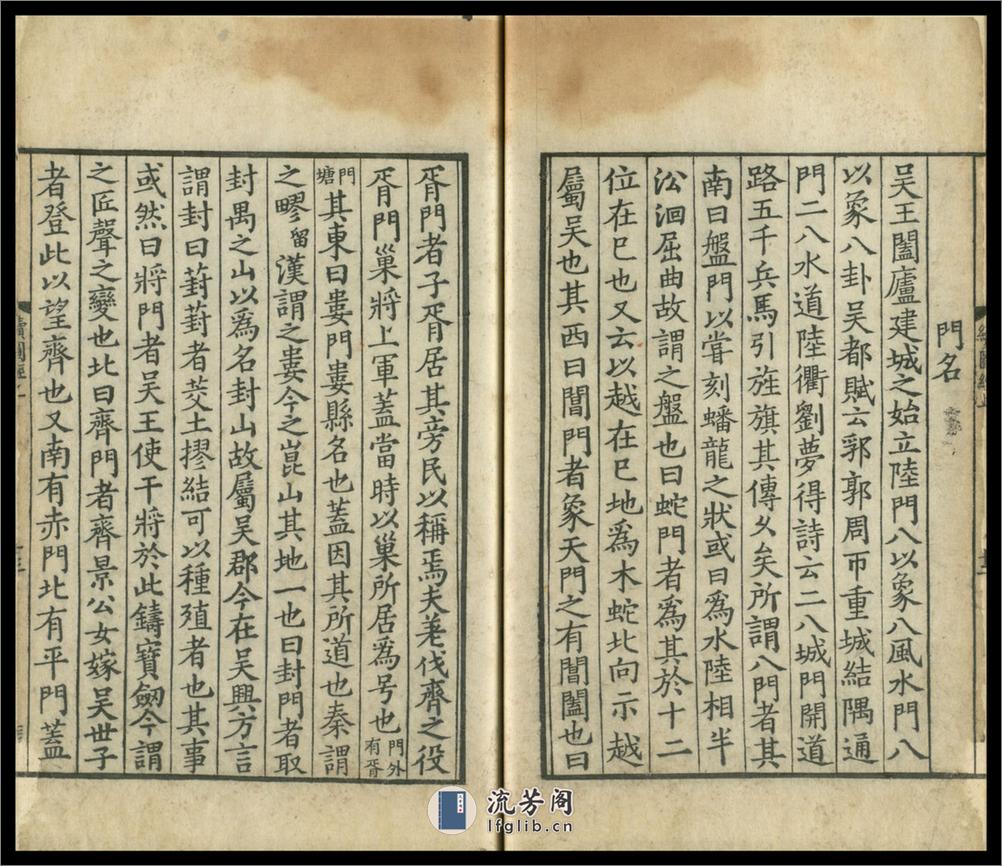 門名
吳王闔廬建城之始立陸門八以象八風水門八
以象八卦吳都賦云郭郭周帀重城結隅通
門二八水道陸衢劉夢得詩云二八城門開道
路五千兵馬引旌旗其傳久矣所謂八門者其
南曰盤門以嘗刻蟠龍之狀或曰爲水陸相半
㳂洄屈曲故謂之盤也曰蛇門者爲其於十二
位在巳也又云以越在巳地爲木蛇北向示越
屬吳也其西曰閶門者象天門之有閶闔也曰
胥門者子胥居其旁民以稱焉夫差伐齊之役
胥門巢將上軍蓋當時以巢所居爲号也門外有胥
門塘其東曰婁門婁縣名也蓋因其所道也秦謂
之疁留漢謂之婁今之崑山其地一也曰封門者取
封禺之山以爲名封山故屬吳郡今在吳興方言
謂封曰葑葑者茭土摎結可以種殖者也其事
或然曰將門者吳王使干將於此鑄寶劒今謂
之匠聲之變也北曰齊門者齊景公女嫁吳世子
者登此以望齊也又南有赤門北有平門蓋
流芳阁
lfglib.cn